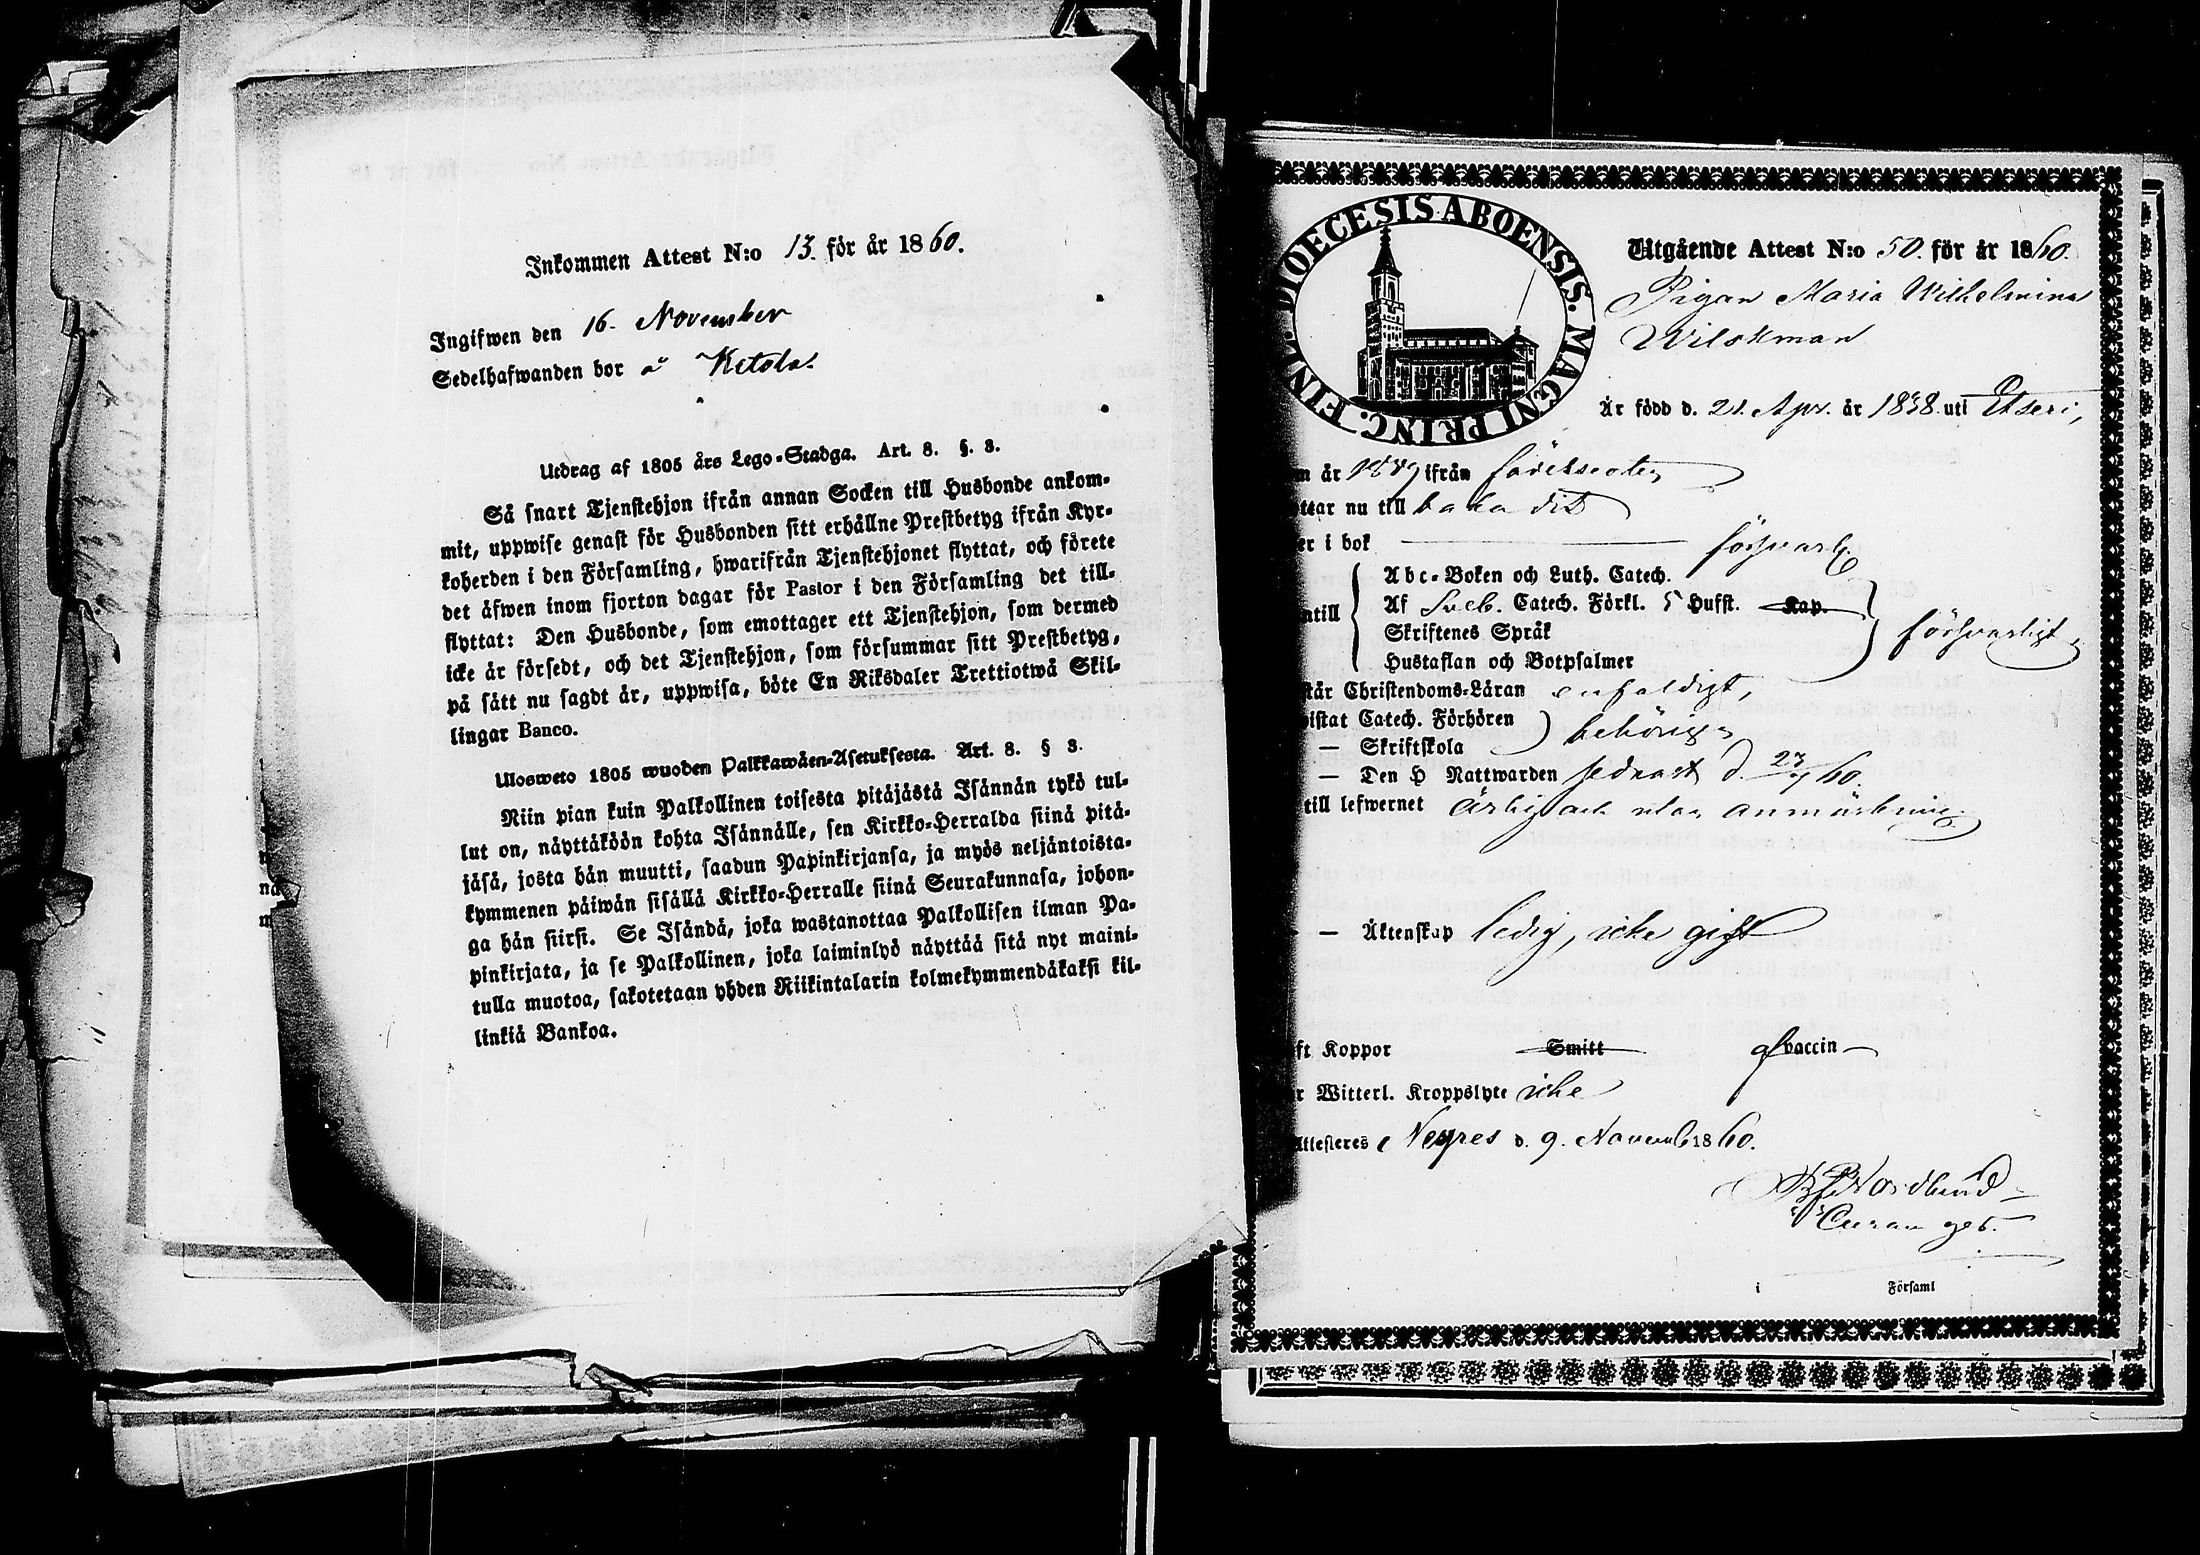 Inkommen Attest N:o 13. för år 1860.
Ingifwen den 16. November
Sedelhafwanden bor å Ketola.
Utdrag af 1805 års Lego-Stadga. Art. 8. §. 3.
Så snart Tjenstehjon ifrån annan Socken till Husbonde ankom-
mit, uppwise genast för Husbonden sitt erhållne Prestbetyg ifrån Kyr-
koherden i den Församling, hwarifrån Tjenstehjonet flyttat, och förete
det äfwen inom fjorton dagar för Pastor i den Församling det till-
flyttat: Den Husbonde, som emottager ett Tjenstehjon, som dermed
icke är försedt, och det Tjenstehjon, som försummar sitt Prestbetyg,
på sätt nu sagdt är, uppwisa, böte En Riksdaler Trettiotwå Skil-
lingar Banco.
Ulosweto 1805 wuoden Palkkawäen-Asetuksesta. Art. 8. § 3.
Niin pian kuin Palkollinen toisesta pitäjästä Isännän tykö tul-
lut on, näyttäköön kohta Isännälle, sen Kirkko-Herralda siinä pitä-
jäsä, josta hän muutti, saadun Papinkirjansa, ja myös neljäntoista-
kymmenen päiwän sisällä Kirkko-Herralle siinä Seurakunnasa, johon-
ga hän siirsi. Se Isändä, joka wastanottaa Palkollisen ilman Pa-
pinkirjata, ja se Palkollinen, joka laiminlyö näyttää sitä nyt maini-
tulla muotoa, sakotetaan yhden Riikintalarin kolmekymmendäkaksi kil-
linkiä Bankoa.
DIOECESIS ABOENSIS. MAGNI PRINC. FINL.
Utgående Attest N:o 50. för år 1860.
Pigan Maria Wilhelmina
Wilskman
Är född d. 21. Apr. år 1838 uti Etseri,
år ifrån födelseorten
ttar nu till baka dit
er i bok försvarl.
Abc-Boken och Luth. Catech.
Af Sveb. Catech. Förkl. 5 Hufst. Kap.
ntill Skriftenes Språk försvarligt
Hustaflan och Botpsalmer
står Christendoms-Läran enfaldigt,
istat Catech. Förhören
— Skriftskola behörigen
— Den H Nattwarden sednast d. 60.
till lefwernet ärlig och utan anmärkning
— Äktenskap ledig, icke gift
ft Koppor Smitt af vaccin
r Witterl. Kroppslyte icke
Attesteres d. 9. Novemb 1860.
Nordlund
i Församl